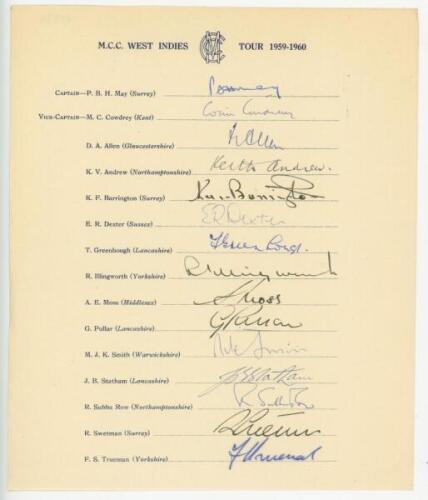 M.C.C. WEST INDIES TOUR 1959-1960
CAPTAIN—P. B. H. MAY (Surrey)
VICE-CAPTAIN—M. C. COWDREY (Kent) Colin Cowdrey
D. A. ALLEN (Gloucestershire) D Allen
K. V. ANDREW (Northamptonshire) Keith Andrew.
K. F. BARRINGTON (Surrey) Ken Barrington
E. R. DEXTER (Sussex) E R Dexter
T. GREENHOUGH (Lancashire)
R. ILLINGWORTH (Yorkshire) R Illingworth
A. E. MOSS (Middlesex) A Moss
G. PULLAR (Lancashire) G Pullar
M. J. K. SMITH (Warwickshire)
J. B. STATHAM (Lancashire) J B Statham
R. SUBBA ROW (Northamptonshire) R Subba Row
R. SWETMAN (Surrey) R Swetman
F. S. TRUEMAN (Yorkshire) F S Trueman